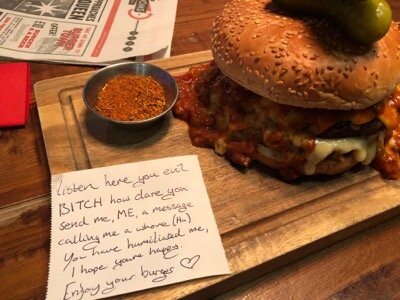 listen here you evil
BITCH how dare you
send me, ME, a message
calling me a whore (Ho)
You have humiliated me,
I hope youre happy.
Enjoy your burger ♡